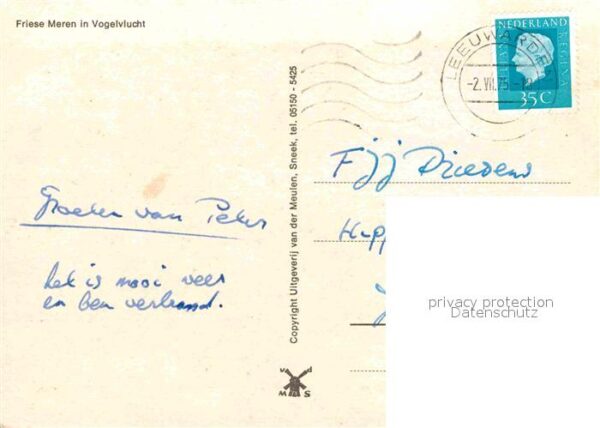 Friese Meren in Vogelvlucht
LEEUWARDEN
-2.VII.75.
NEDERLAND
35C
Groeten van Peter
het is mooi weer
en ben verbrand.
Copyright Uitgeverij van der Meulen, Sneek, tel. 05150 - 5425
v d
M S
Fijj
privacy protection
Datenschutz